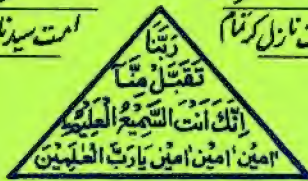 نازل کر تمام
امت سیدنا
رَبَّنَا
تَقَبَّلْ مِنَّا
اِنَّكَ اَنْتَ السَّمِيْعُ الْعَلِيْمُ
امین امین امین یا رَبَّ الْعٰلَمِیْنَ